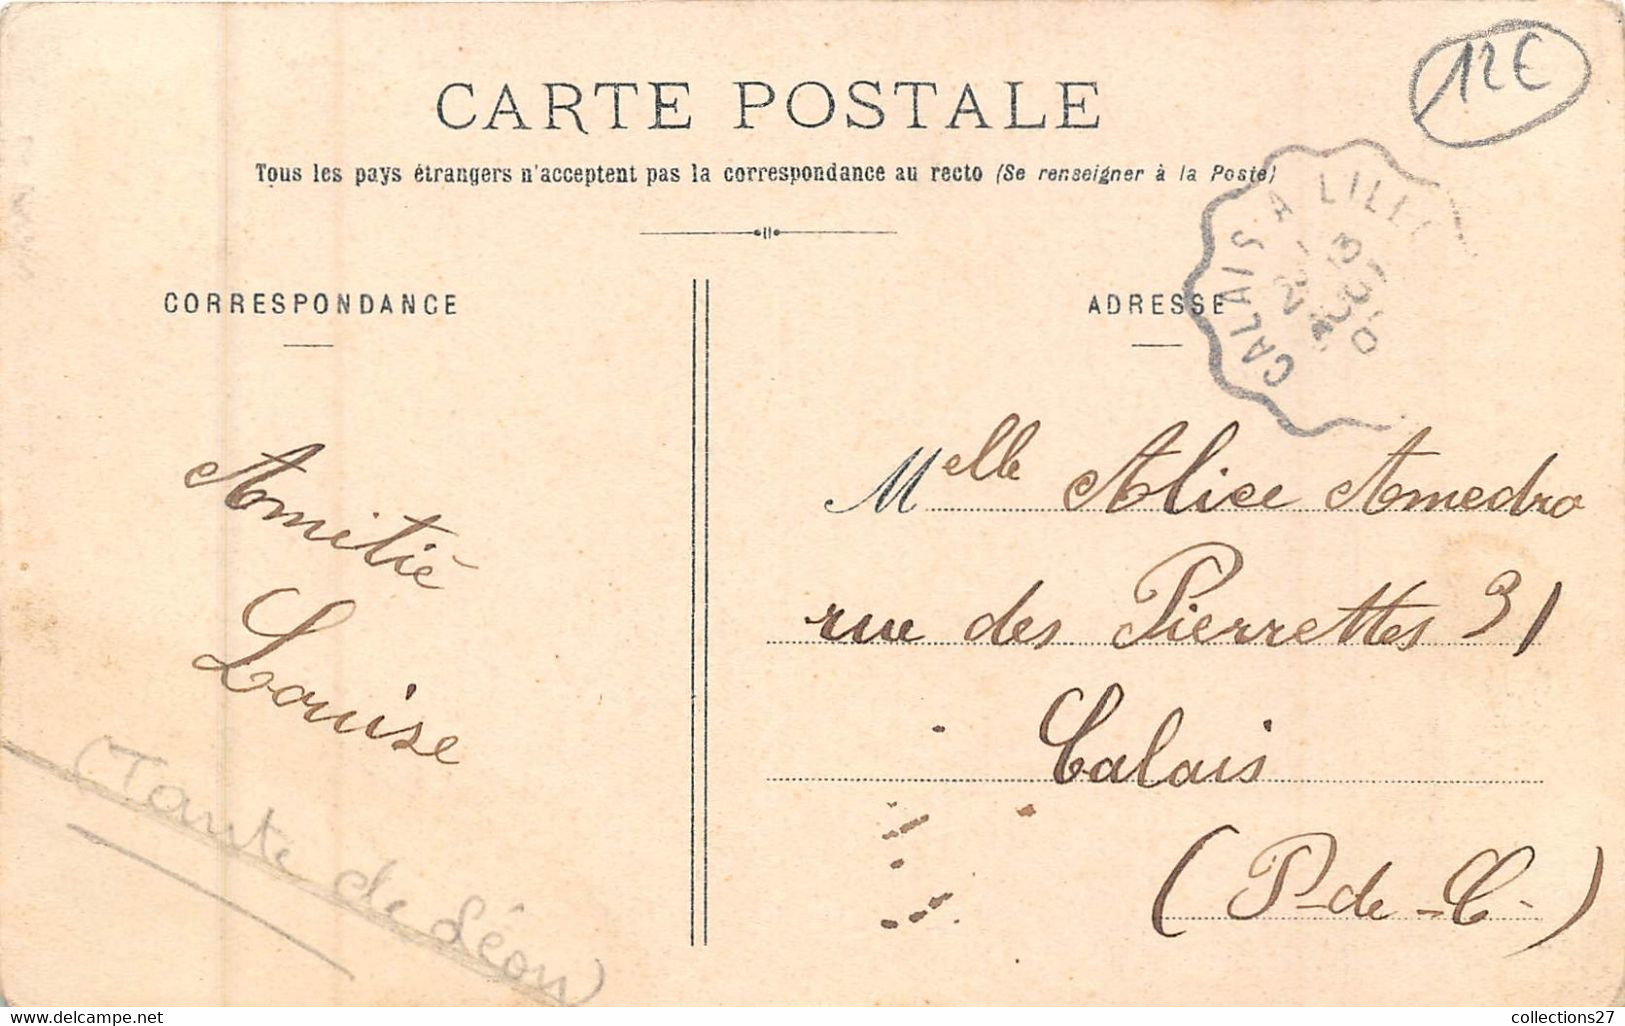 12€
CARTE POSTALE
Tous les pays étrangers n'acceptent pas la correspondance au recto (Se renseigner à la Poste)
CALAIS A LILLE
CORRESPONDANCE
ADRESSE
Amitié
Louise
(Tante de Léon)
Melle Alice Amedro
rue des Pierrettes 31
Calais
(P-de-C-)
delcampe.net
collections27